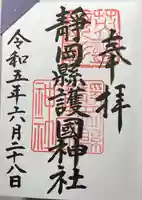 奉拜
靜岡縣護國神社
令和五年六月二十八日